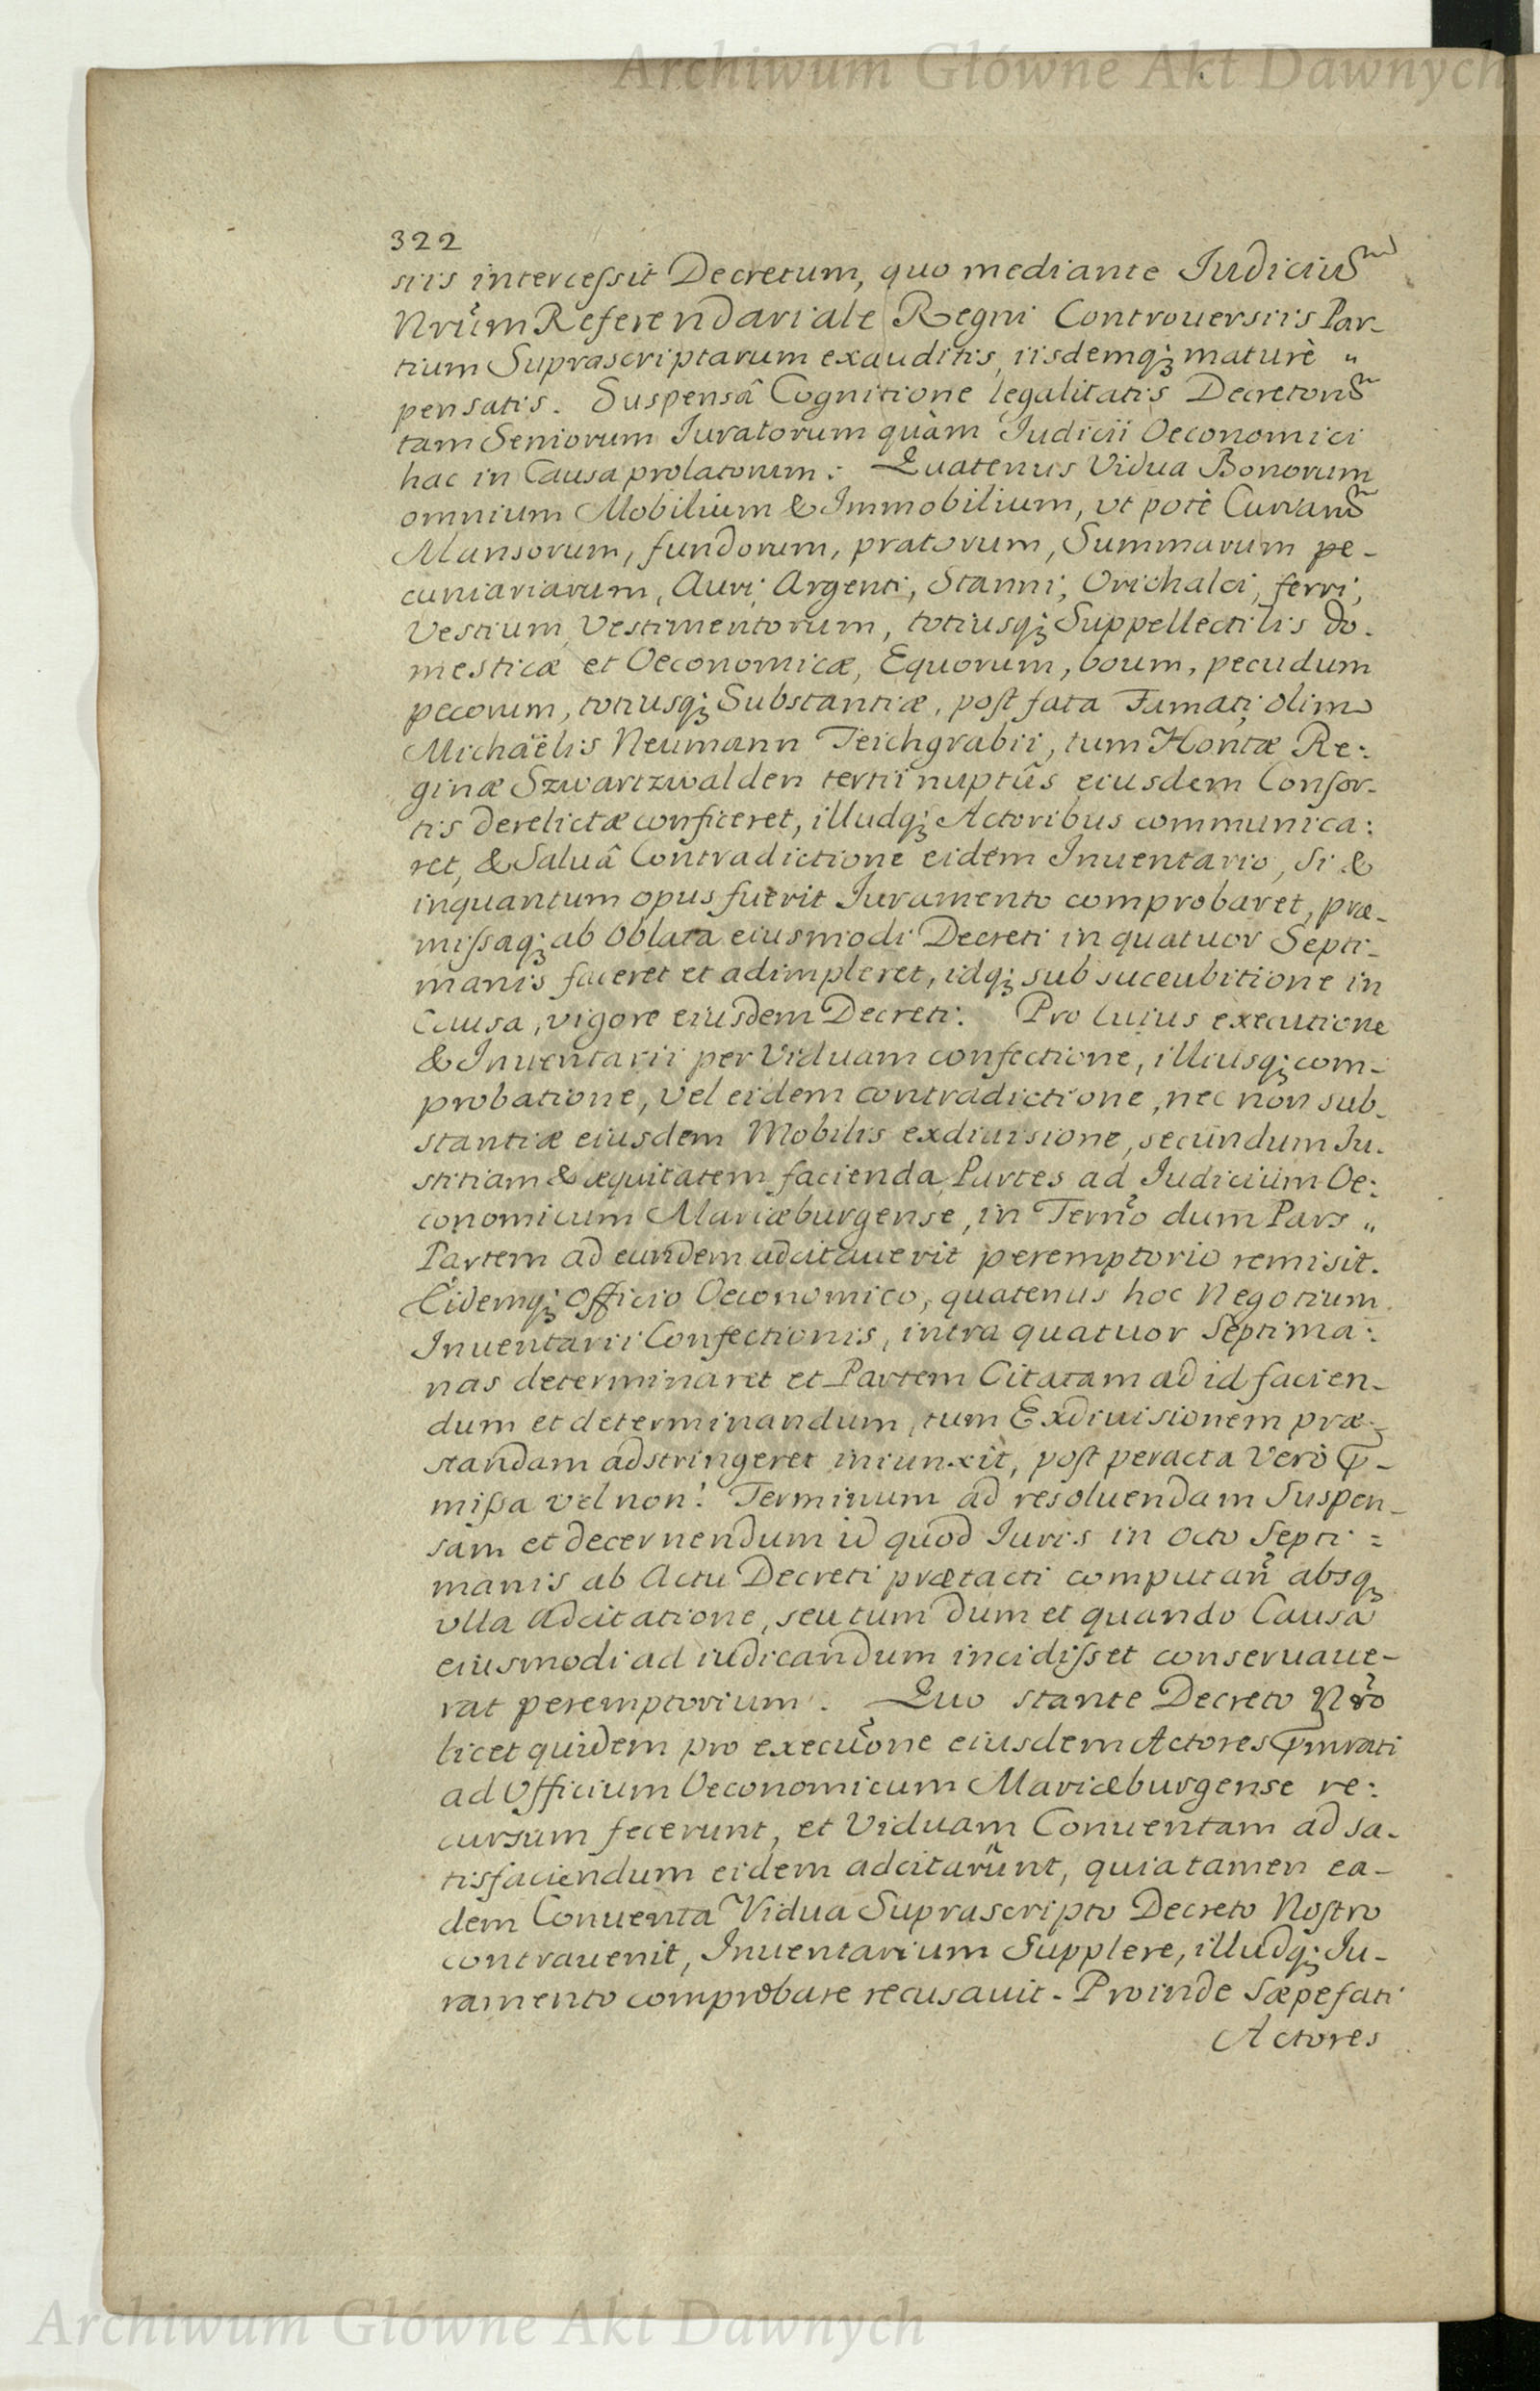 Archiwum Główne Akt Dawnych
322
siis intercessit Decretum, quo mediante Iudiciũ
Nrũm Referendariale Regni Controuersiis Par-
tium Suprascriptarum exauditis, iisdemq; maturè "
pensatis. Suspensâ Cognitione legalitatis Decretorũ
tam Seniorum Iuratorum quàm Iudicii Oeconomici
hac in Causa prolatorum: Quatenus Vidua Bonorum
omnium Mobilium & Immobilium, ut potè
Mansorum, fundorum, pratorum, Summarum pe-
cuniariarum, Auri, Argenti, Stanni, Orichalci, ferri,
Vestium, Vestimentorum, totiusq; Suppellectilis do-
mesticæ et Oeconomicæ, Equorum, boum, pecudum
pecorum, totiusq; Substantiæ, post fata Famati olim
Michaëlis Neumann Teichgrabii, tum Hontæ Re:
ginæ Szwartzwalden tertii nuptûs eiusdem Consor-
tis derelictæ conficeret, illudq; Actoribus communica:
ret, & Saluâ Contradictione eidem Inuentario, Si &
inquantum opus fuerit Iuramento comprobaret, præ-
missaq; ab Oblata eiusmodi Decreti in quatuor Septi-
manis faceret et adimpleret, idq; sub succubitione in
Causa, vigore eiusdem Decreti. Pro cuius executione
& Inuentarii per Viduam confectione, illiusq; com-
probatione, vel eidem contradictione, nec non sub-
stantiæ eiusdem Mobilis exdiuisione, secundum Iu-
stitiam & æquitatem facienda Partes ad Iudicium Oe:
conomicum Mariæburgense, in Termo dum Pars "
Partem ad eundem adcitauerit peremptorio remisit.
Eidemq; Officio Oeconomico, quatenus hoc Negotium
Inuentarii Confectionis, intra quatuor Septima:
nas determinaret et Partem Citatam ad id facien-
dum et determinandum, tum Exdiuisionem præ-
standam adstringeret iniunxit, post peracta Verò p̃-
missa vel non: Terminum ad resoluendam Suspen-
sam et decernendum id quod Iuris in octo Septi =
manis ab Actu Decreti prætacti computañ absq;
ulla adcitatione, seu tum dum et quando Causa
eiusmodi ad iudicandum incidisset conseruaue-
rat peremptorium. Quo stante Decreto Nrõ
licet quidem pro execuõne eiusdem Actores p̃mrati
ad Officium Oeconomicum Mariæburgense re:
cursum fecerunt, et Viduam Conuentam ad sa-
tisfaciendum eidem adcitarũnt, quia tamen ea-
dem Conuenta Vidua Suprascripto Decreto Nostro
contrauenit, Inuentarium Supplere, illudq; Iu-
ramento comprobare recusauit. Proinde Sæpefati
Actores
Archiwum Główne Akt Dawnych